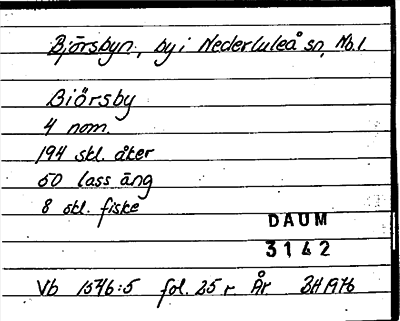 Bjørsbyn, by i Nederluleå sn, Nb.l.
Biörsby
4 nom.
194 skl. åker
50 lass äng
8 skl. fiske
DAUM
3142
Vb 1546:5 fol. 25 r. År BH 1976